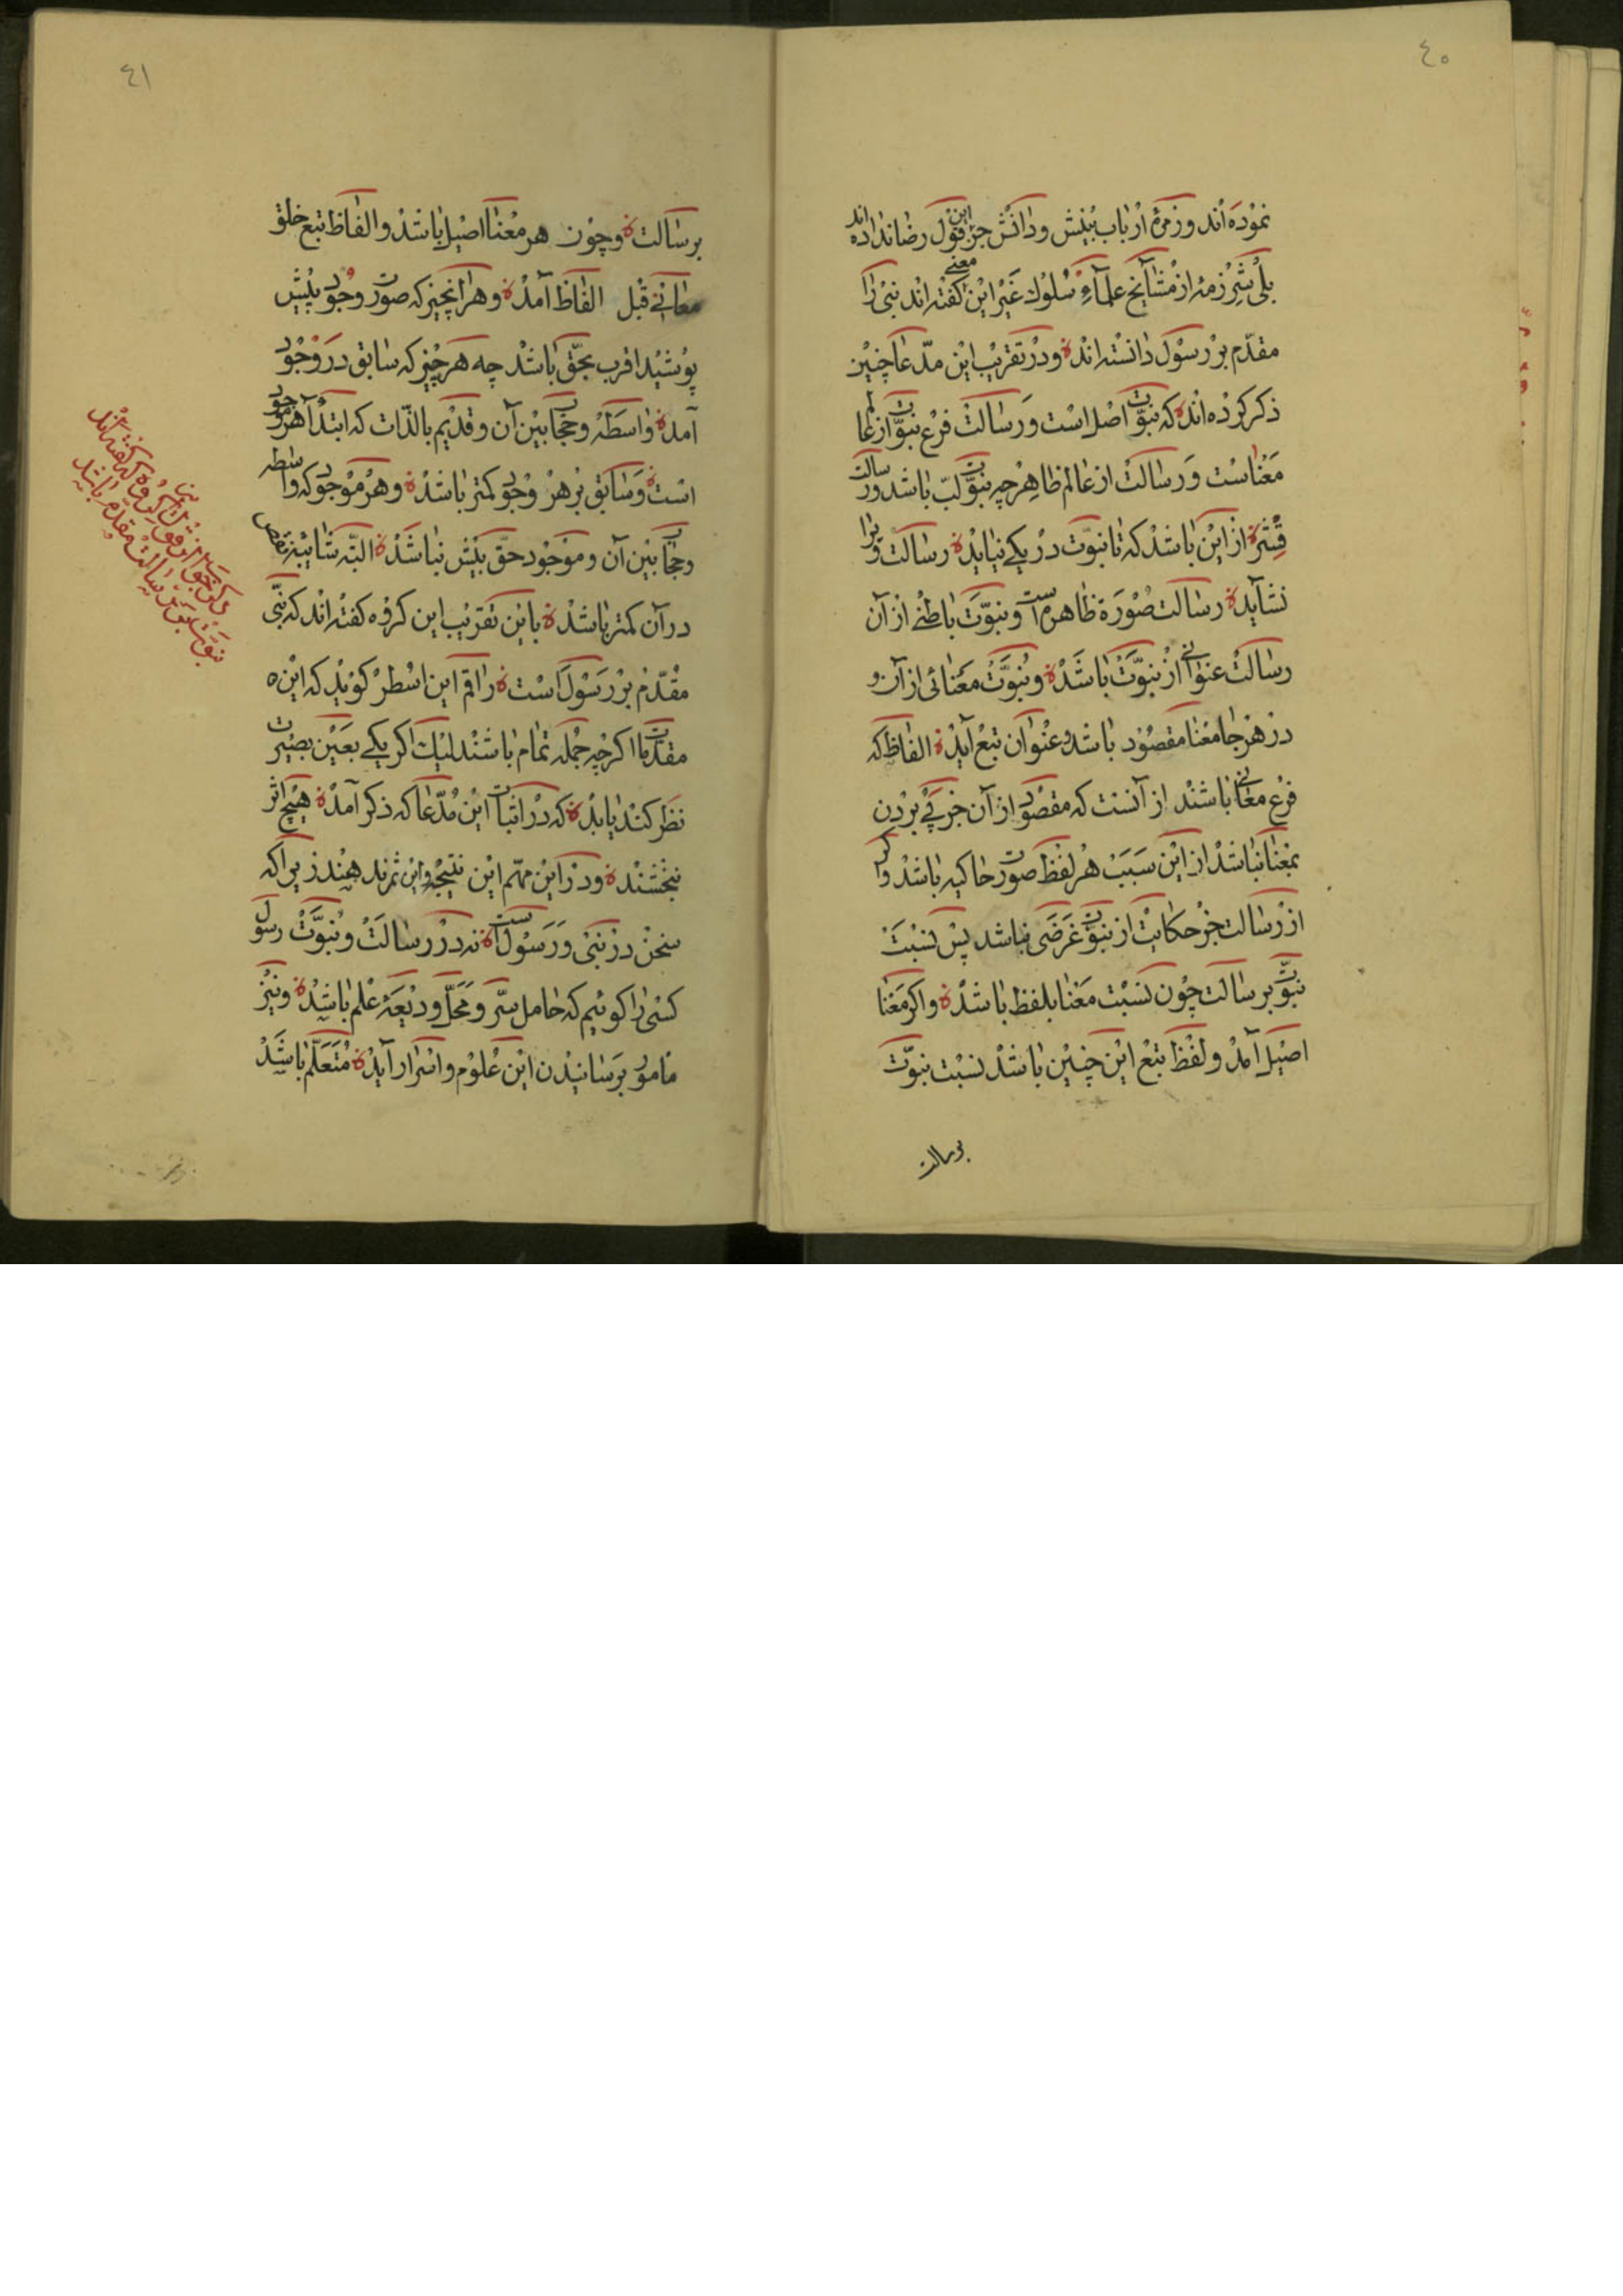 ٤٠
نموده اند وزمرهٔ ارباب بینش ودانش جز این قول رضا نداده اند
مقدّم بر رسول دانسته اند ودر تقریب این مدّعا چنین
ذکر کرده اند که نبوّت اصل است ورسالت فرع نبوّت از عالم
معناست ورسالت از عالم ظاهر چه نبوّت لبّ باشد ورسالت
قشر از این باشد که تا نبوّت در یکی نیاید رسالت ویرا
نشاید رسالت صورة ظاهر است ونبوّت باطنی از آن
رسالت عنوانی از نبوّت باشد ونبوّت معنائی از آن و
در هر جا معنا مقصود باشد وعنوان تبع آید الفاظ که
فرع معانی باشند از آنست که مقصود از آن جز پی بردن
بمعنا نباشد از این سبب هر لفظ صورت حاکیه باشد واکر
از رسالت جز حکایت از نبوّت غرضی نباشد پس نسبت
نبوّت بر سالت چون نسبت معنا بلفظ باشد واکر معنا
اصیل آمد ولفظ تبع این چنین باشد نسبت نبوّت
برسالت
٤١
برسالت وچون هر معنا اصیل باشد والفاظ تبع خلق
معانی قبل الفاظ آمد وهر آنچیز که صورت وجود پیش
پوشید اقرب بحقّ باشد چه هر چیز که سابق در وجود
آمد واسطه وحجاب بین آن وقدیم بالذّات که ابتدا هر موجود
است وسابق بر هر وجود کمتر باشد وهر موجود که واسطه
وحجاب بین آن وموجود حقّ بیش نباشد البتّه شائبهٔ نقص
در آن کمتر باشد باین تقریب این کروه کفته اند که نبّی
مقدّم بر رسول است راقم این اسطر کوید که این
مقدّمات اکر چه جمله تمام باشند لیک اکر یکی بعین بصیرت
نظر کند یابد که در اثبات این مدّعا که ذکر آمد هیچ اثر
نبخشند ودر این مهمّ این نتیجه واین ثمر ندهند زیرا که
سخن در نبی ورسول است نه در رسالت ونبوّت رسول
کسی را کوئیم که حامل سرّ ومحلّ ودیعهٔ علم باشد ونیز
مامور برسانیدن این علوم واسرار آید متعلّم باشد